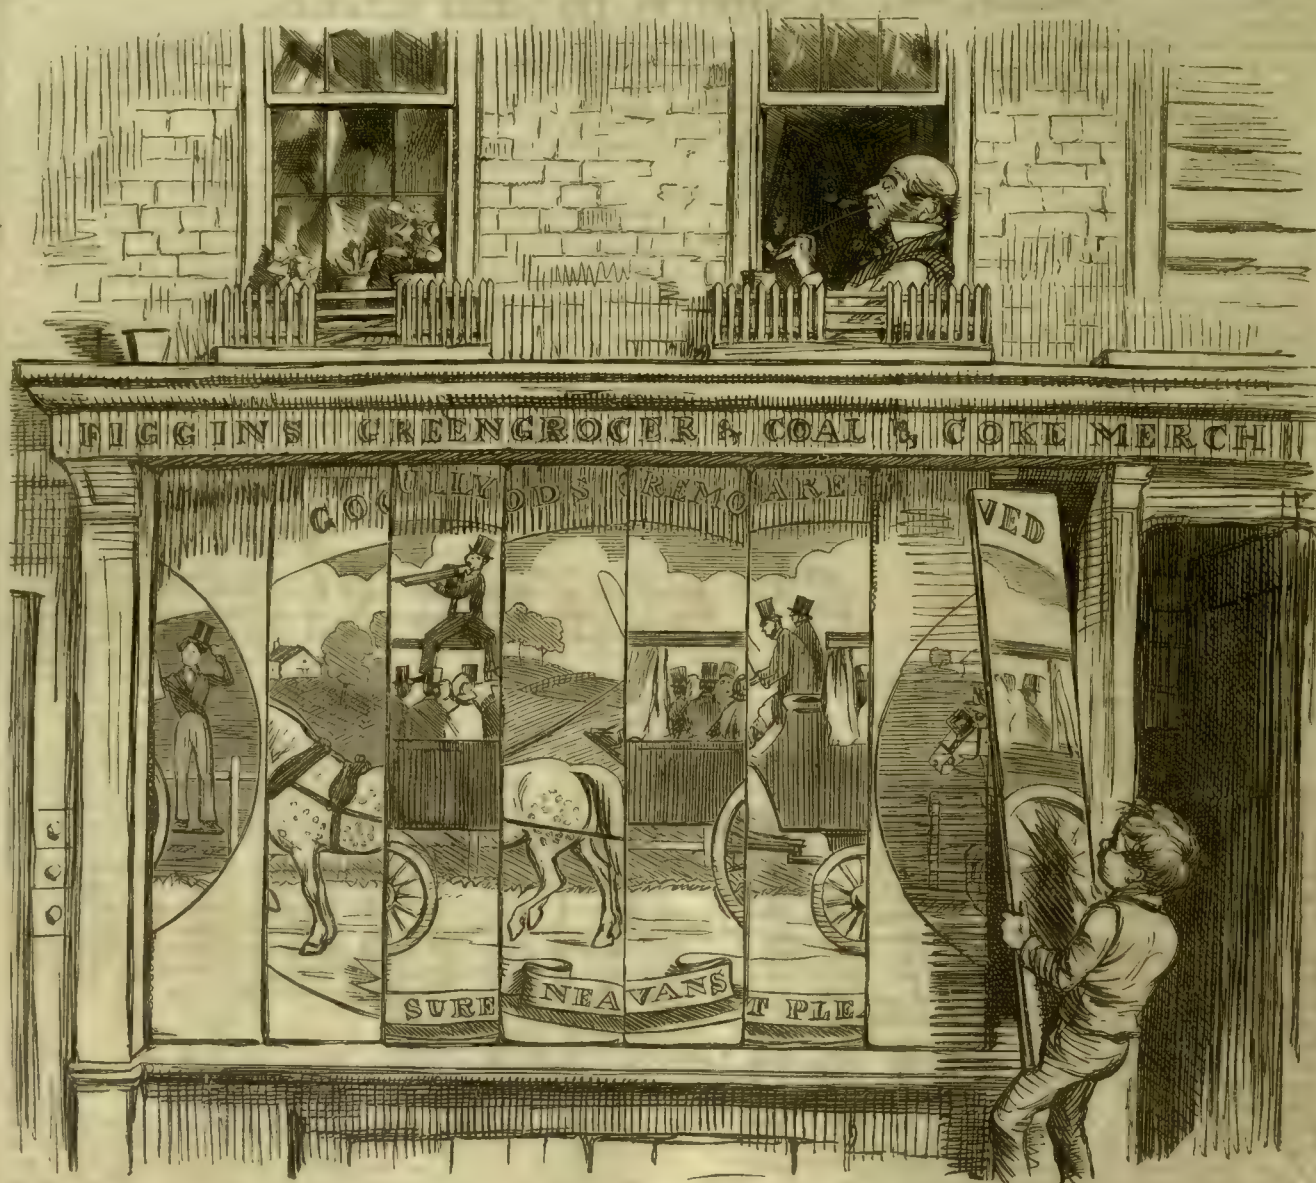 FIGGINS GREENGROCER & COAL & COKE MERCH
GO ULLY ODS REMO ARE VED
SURE NEA VANS T PLE